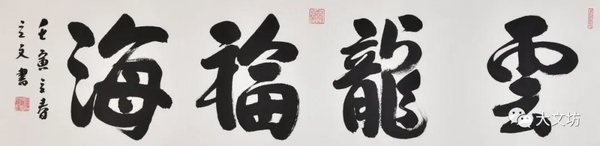 雲龍福海
壬寅立春
立文書
大文坊